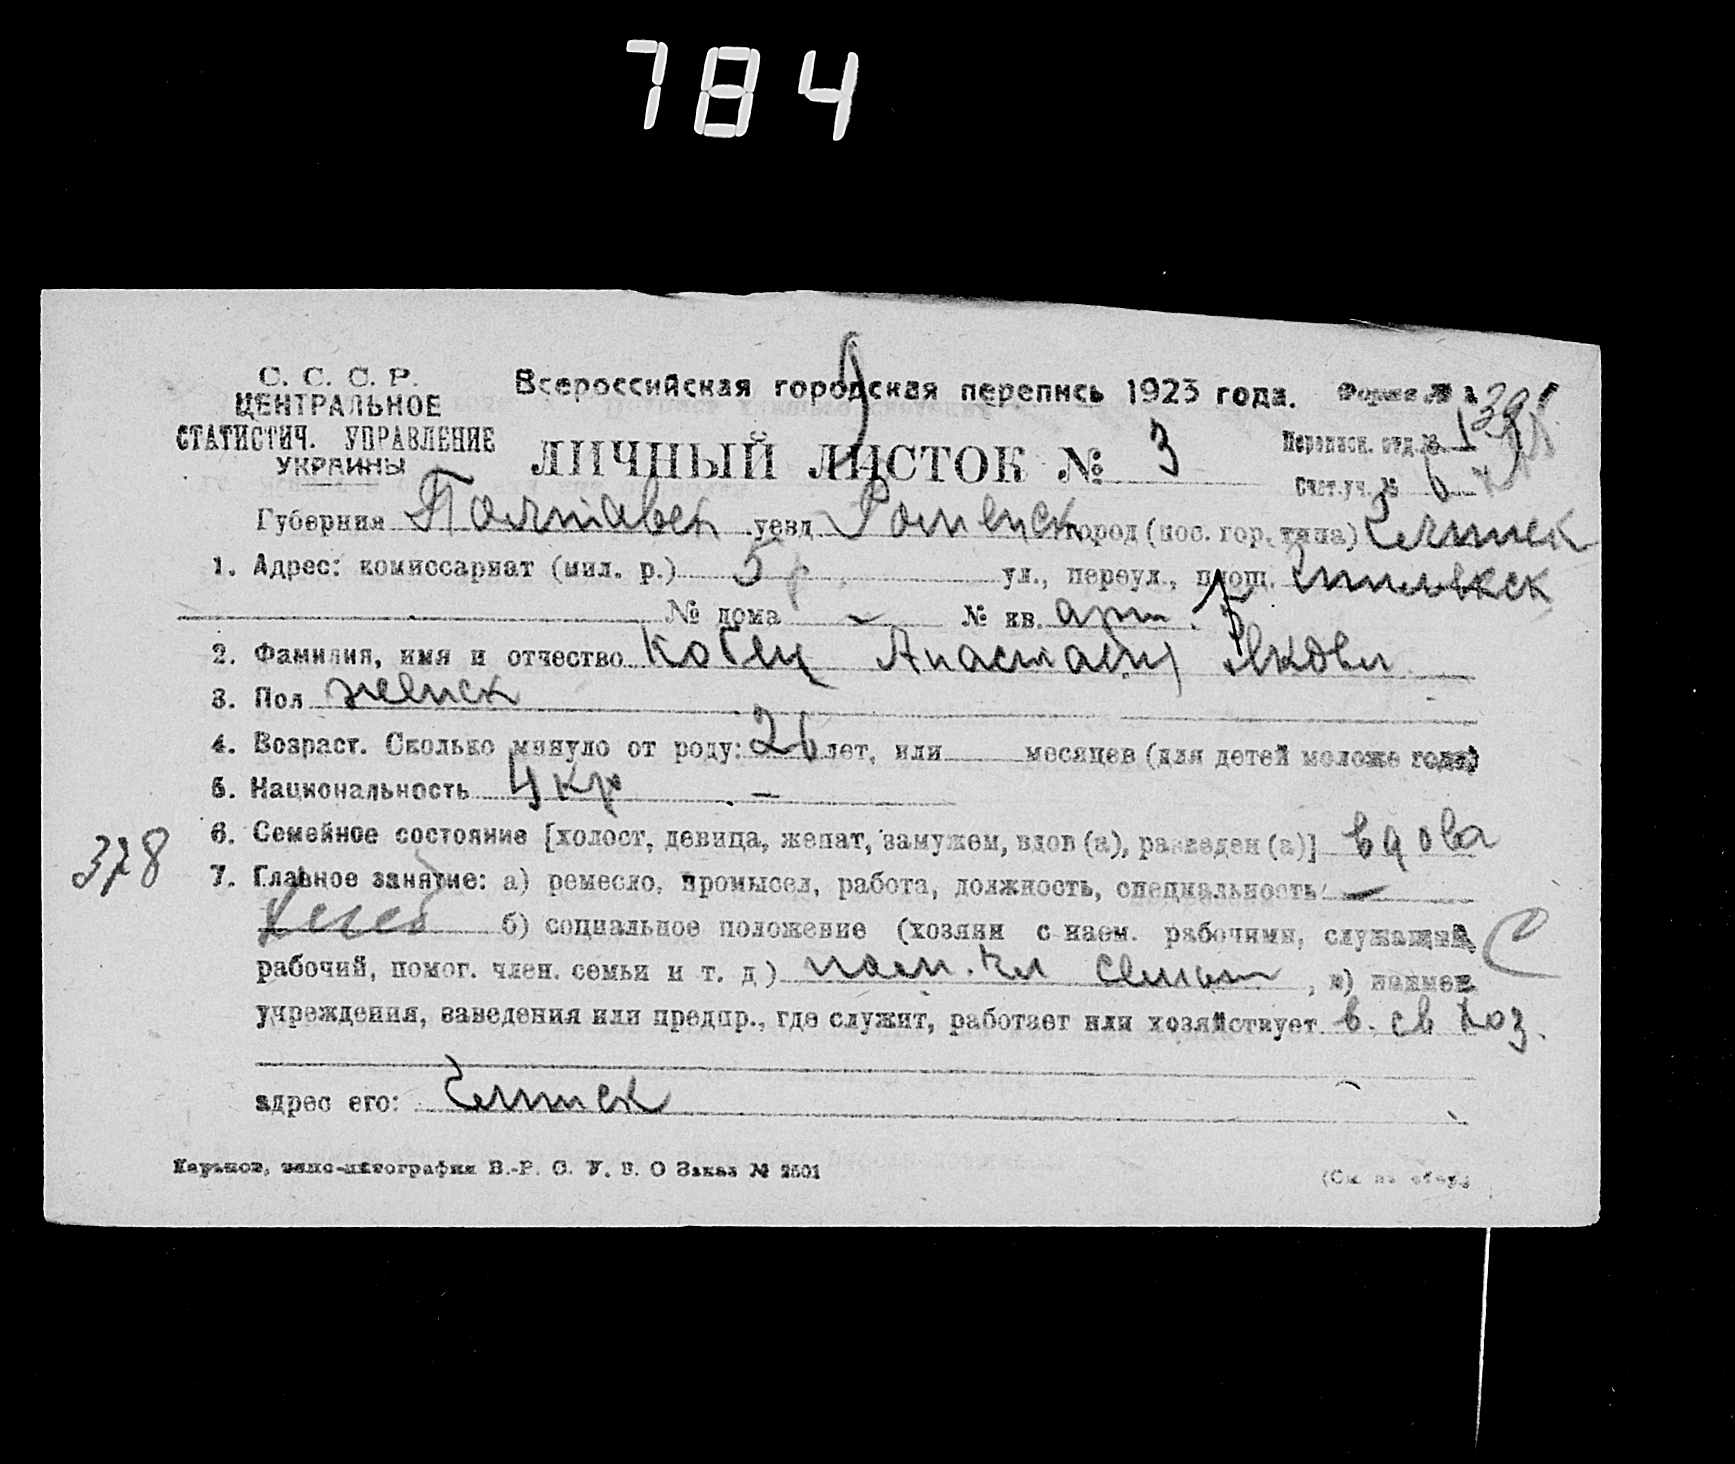 784
С. С. С. Р.
ЦЕНТРАЛЬНОЕ
СТАТИСТИЧ. УПРАВЛЕНИЕ
УКРАИНЫ
Всероссийская городская перепись 1923 года.
Форма № 1
ЛИЧНЫЙ ЛИСТОК № 3
Переписн. отд. №
Счет. уч. № 6
Губерния Полтавск уезд Роменск город (пос. гор. типа)
1. Адрес: комиссариат (мил. р.) 5 р ул., переул., площ.
№ дома — № кв. арт.
2. Фамилия, имя и отчество Кобец Анастасия Яковл
3. Пол женск
4. Возраст. Сколько минуло от роду: 26 лет, или месяцев (для детей моложе года)
5. Национальность Укр —
378
6. Семейное состояние [холост, девица, женат, замужем, вдов (а), разведен (а)] вдова
7. Главное занятие: а) ремесло, промысел, работа, должность, специальность —
б) социальное положение (хозяин с наем. рабочими, служащий,
рабочий, помог. член. семьи и т. д) , в) наимен.
учреждения, заведения или предпр., где служит, работает или хозяйствует в. св хоз.
адрес его:
Харьков, типо-литография В.-Р. С. У. В. О Заказ № 2501
(См. на обор.)